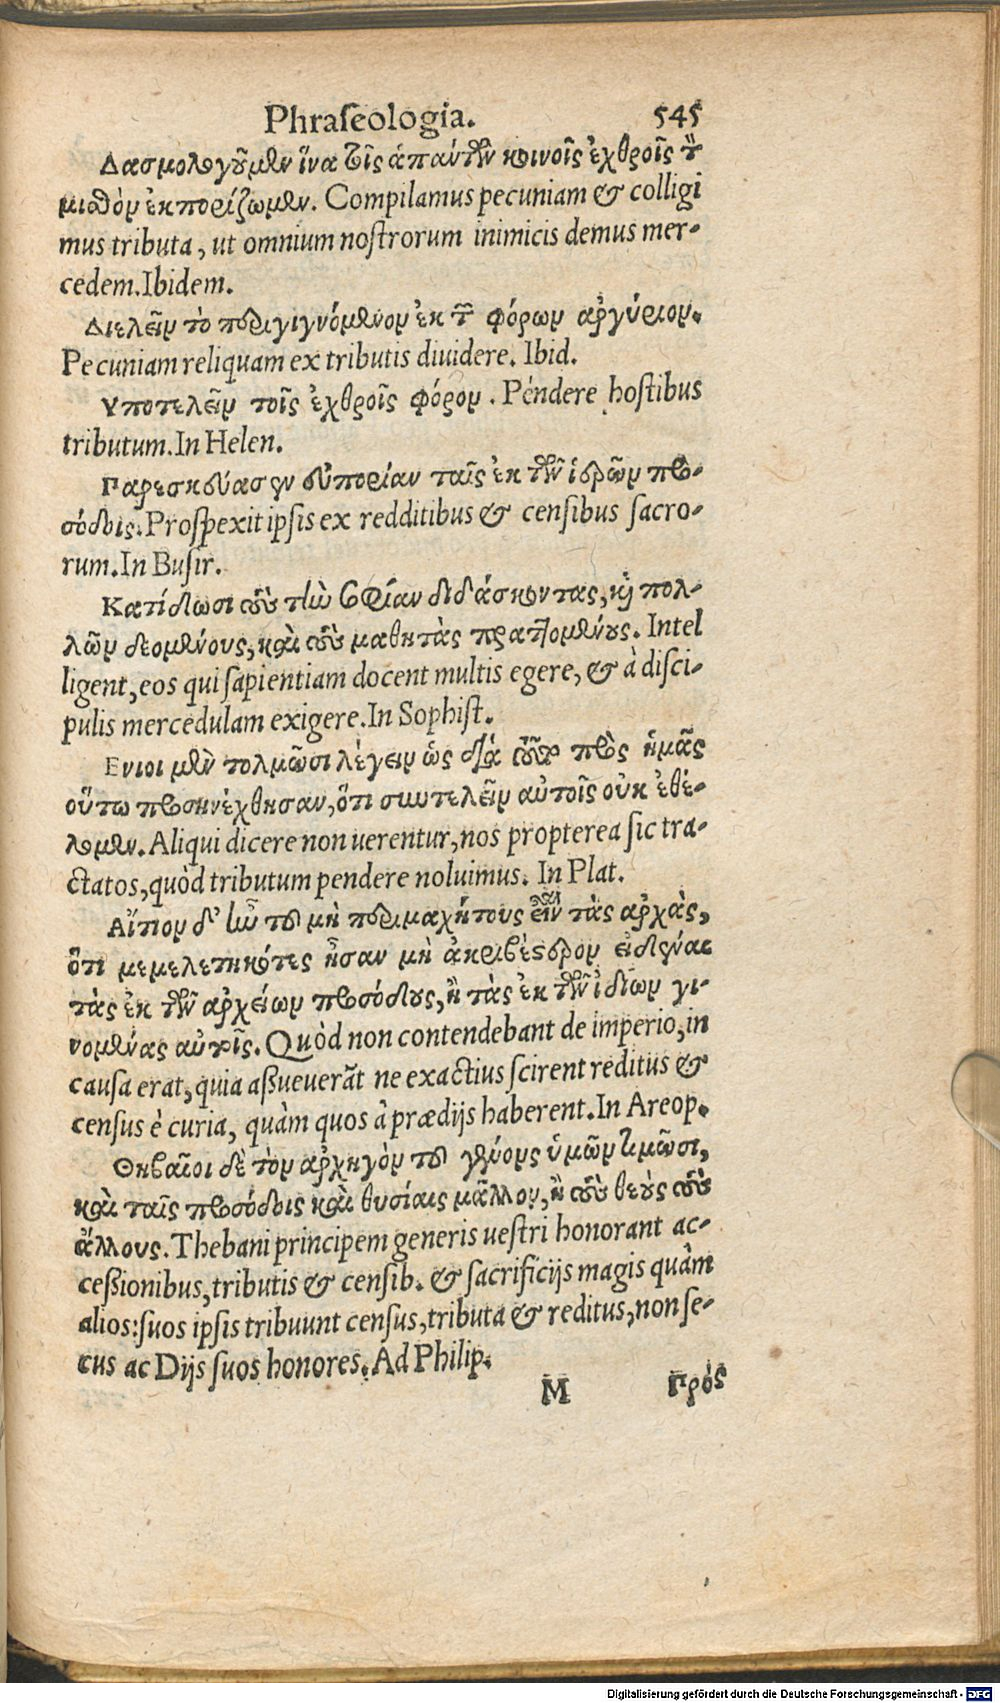 Phraſeologia. 545
Δασμολογοῦμεν ἵνα τοῖς ἁπάντων κοινοῖς ἐχθροῖς τὸν
μισθὸν ἐκπορίζωμεν. Compilamus pecuniam & colligi
mus tributa, ut omnium noſtrorum inimicis demus mer-
cedem. Ibidem.
Διελεῖν τὸ περιγιγνόμενον ἐκ τῶν φόρων ἀργύριον.
Pecuniam reliquam ex tributis diuidere. Ibid.
Υποτελεῖν τοῖς ἐχθροῖς φόρον. Péndere hoſtibus
tributum. In Helen.
Παρεσκεύασεν εὐπορίαν ταῖς ἐκ τῶν ἱερῶν προ-
σόδοις. Proſpexit ipſis ex redditibus & cenſibus ſacro-
rum. In Buſir.
Κατίδωσι τοὺς τὴν σοφίαν διδάσκοντας, καὶ πολ-
λῶν δεομένους, καὶ τοὺς μαθητὰς πραττομένους. Intel
ligent, eos qui ſapientiam docent multis egere, & à diſci-
pulis mercedulam exigere. In Sophiſt.
Ενιοι μὲν τολμῶσι λέγειν ὡς διὰ τοῦτο πρὸς ἡμᾶς
οὕτω προσηνέχθησαν, ὅτι συντελεῖν αὐτοῖς οὐκ ἐθέ-
λομεν. Aliqui dicere non uerentur, nos propterea ſic tra-
ctatos, quòd tributum pendere noluimus. In Plat.
Αἴτιον δ' ἦν τοῦ μὴ περιμαχήτους εἶναι τὰς ἀρχὰς,
ὅτι μεμελετηκότες ἦσαν μὴ ἀκριβέστερον εἰδέναι
τὰς ἐκ τῶν ἀρχείων προσόδους, ἢ τὰς ἐκ τῶν ἰδίων γι-
νομένας αὐτοῖς. Quòd non contendebant de imperio, in
cauſa erat, quia aßueuerãt ne exactius ſcirent reditus &
cenſus è curia, quàm quos à prædijs haberent. In Areop.
Θηβαῖοι δὲ τὸν ἀρχηγὸν τοῦ γένους ὑμῶν τιμῶσι,
καὶ ταῖς προσόδοις καὶ θυσίαις μᾶλλον, ἢ τοὺς θεοὺς τοὺς
ἄλλους. Thebani principem generis ueſtri honorant ac-
ceßionibus, tributis & cenſib. & ſacrificijs magis quàm
alios: ſuos ipſis tribuunt cenſus, tributa & reditus, non ſe-
cus ac Dijs ſuos honores. Ad Philip.
M Πρός
Digitalisierung gefördert durch die Deutsche Forschungsgemeinschaft - DFG